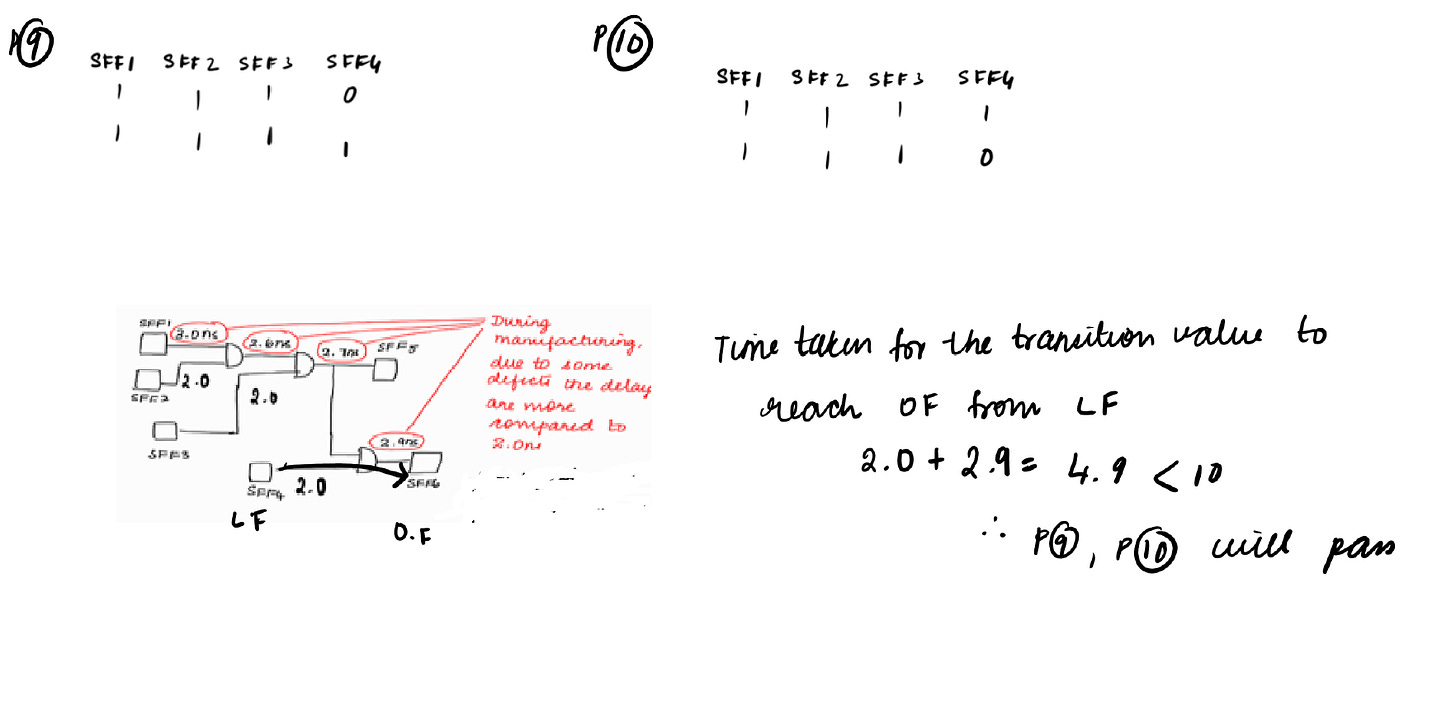 P9
SFF1 SFF2 SFF3 SFF4
1 1 1 0
1 1 1 1
P10
SFF1 SFF2 SFF3 SFF4
1 1 1 1
1 1 1 0
SFF1
3.0ns
2.6ns
2.7ns
SFF5
2.0
SFF2
2.0
SFF3
2.9ns
SFF4
2.0
SFF6
LF
O.F
During
manufacturing,
due to some
defects the delay
are more
compared to
2.0ns
Time taken for the transition value to
reach OF from LF
2.0 + 2.9 = 4.9 < 10
∴ P9, P10 will pass